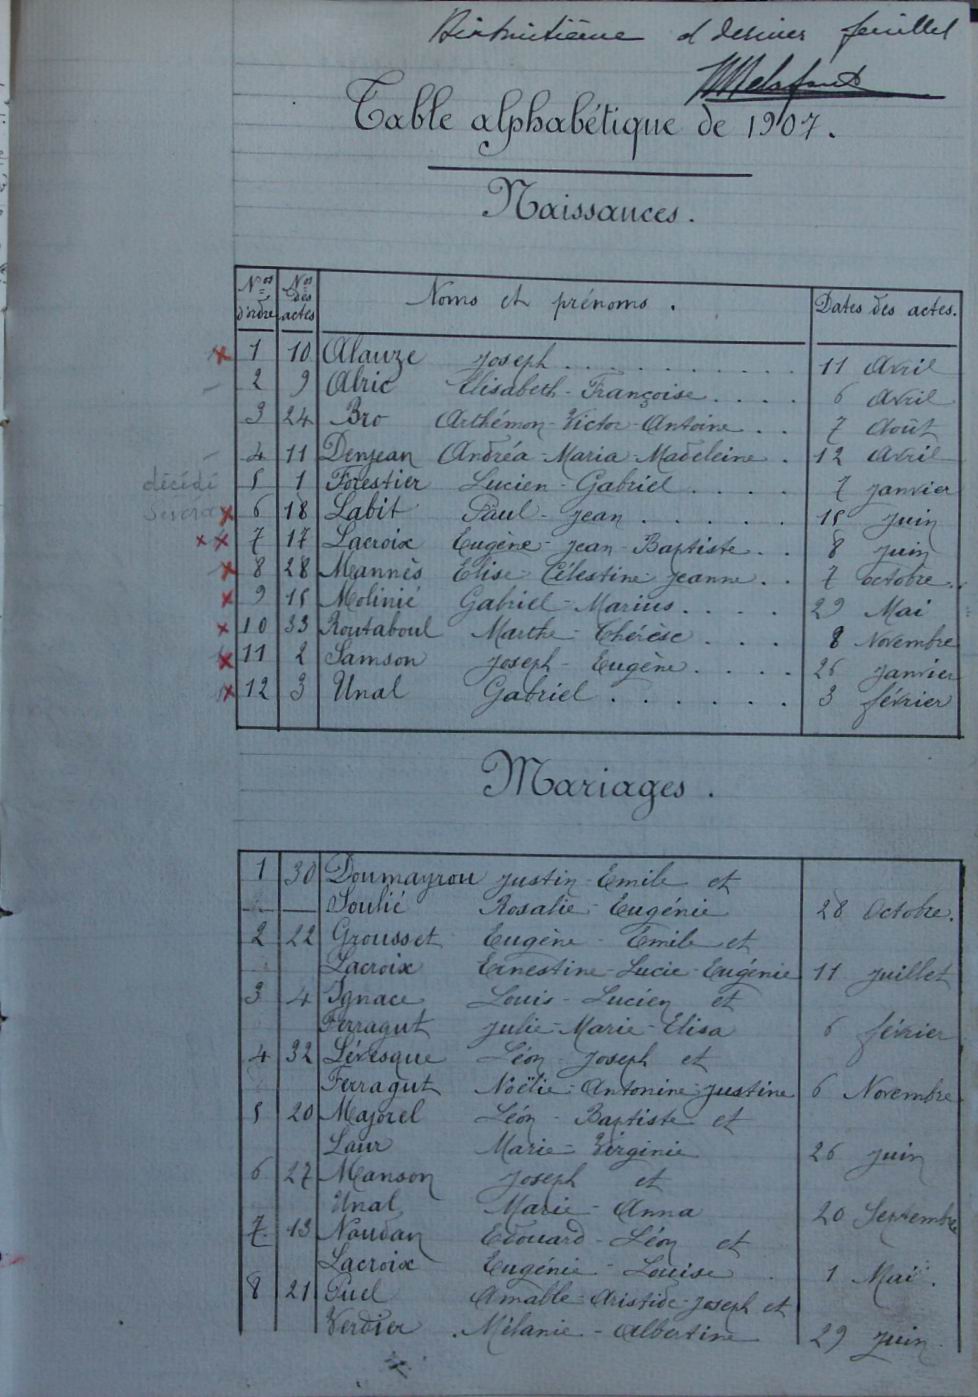 et dernier feuillet
Table alphabétique de 1907.
Naissances.
Nos d'ordre Nos des actes Noms et prénoms. Dates des actes.
1 10 Alauze Joseph 11 Avril
2 9 Alric Elisabeth-Françoise 6 Avril
3 24 Bro Arthémon-Victor-Antoine 7 Août
4 11 Denjean Andréa-Maria-Madeleine 12 Avril
décédé 5 1 Forestier Lucien-Gabriel 7 Janvier
6 18 Labit Paul-Jean 15 Juin
7 17 Lacroix Eugène-Jean-Baptiste 8 Juin
8 28 Mannès Elise Célestine Jeanne 7 Octobre
9 15 Molinié Gabriel-Marius 29 Mai
10 33 Routaboul Marthe-Thérèse 8 Novembre
11 2 Samson Joseph-Eugène 26 Janvier
12 3 Unal Gabriel 3 février
Mariages.
1 30 Doumayrou Justin-Emile et
Soulié Rosalie-Eugénie 28 Octobre.
2 22 Grousset Eugène-Emile et
Lacroix Ernestine-Lucie-Eugénie 11 Juillet
3 4 Ignace Louis-Lucien et
Ferragut Julie-Marie-Elisa 6 février
4 32 Lévesque Léon-Joseph et
Ferragut Noëlie-Antonine-Justine 6 Novembre
5 20 Majorel Léon-Baptiste et
Laur Marie-Virginie 26 Juin
6 27 Manson Joseph et
Unal Marie-Anna 20 Septembre
7 13 Naudan Edouard-Léon et
Lacroix Eugénie-Louise 1 Mai.
8 21 Puel Amable-Aristide-Joseph et
Verdier Mélanie-Albertine 29 Juin